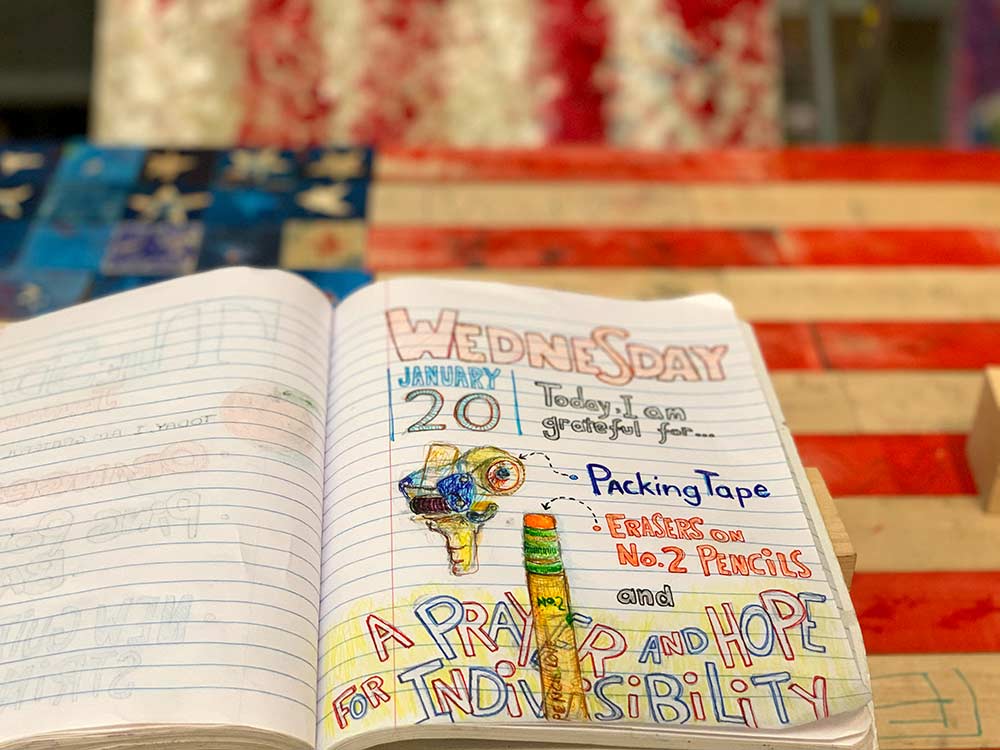 WEDNESDAY
JANUARY
20
Today, I am
grateful for...
PACKING TAPE
ERASERS ON
No. 2 PENCILS
and
No. 2
A PRAYER AND HOPE
FOR INDIVISIBILITY